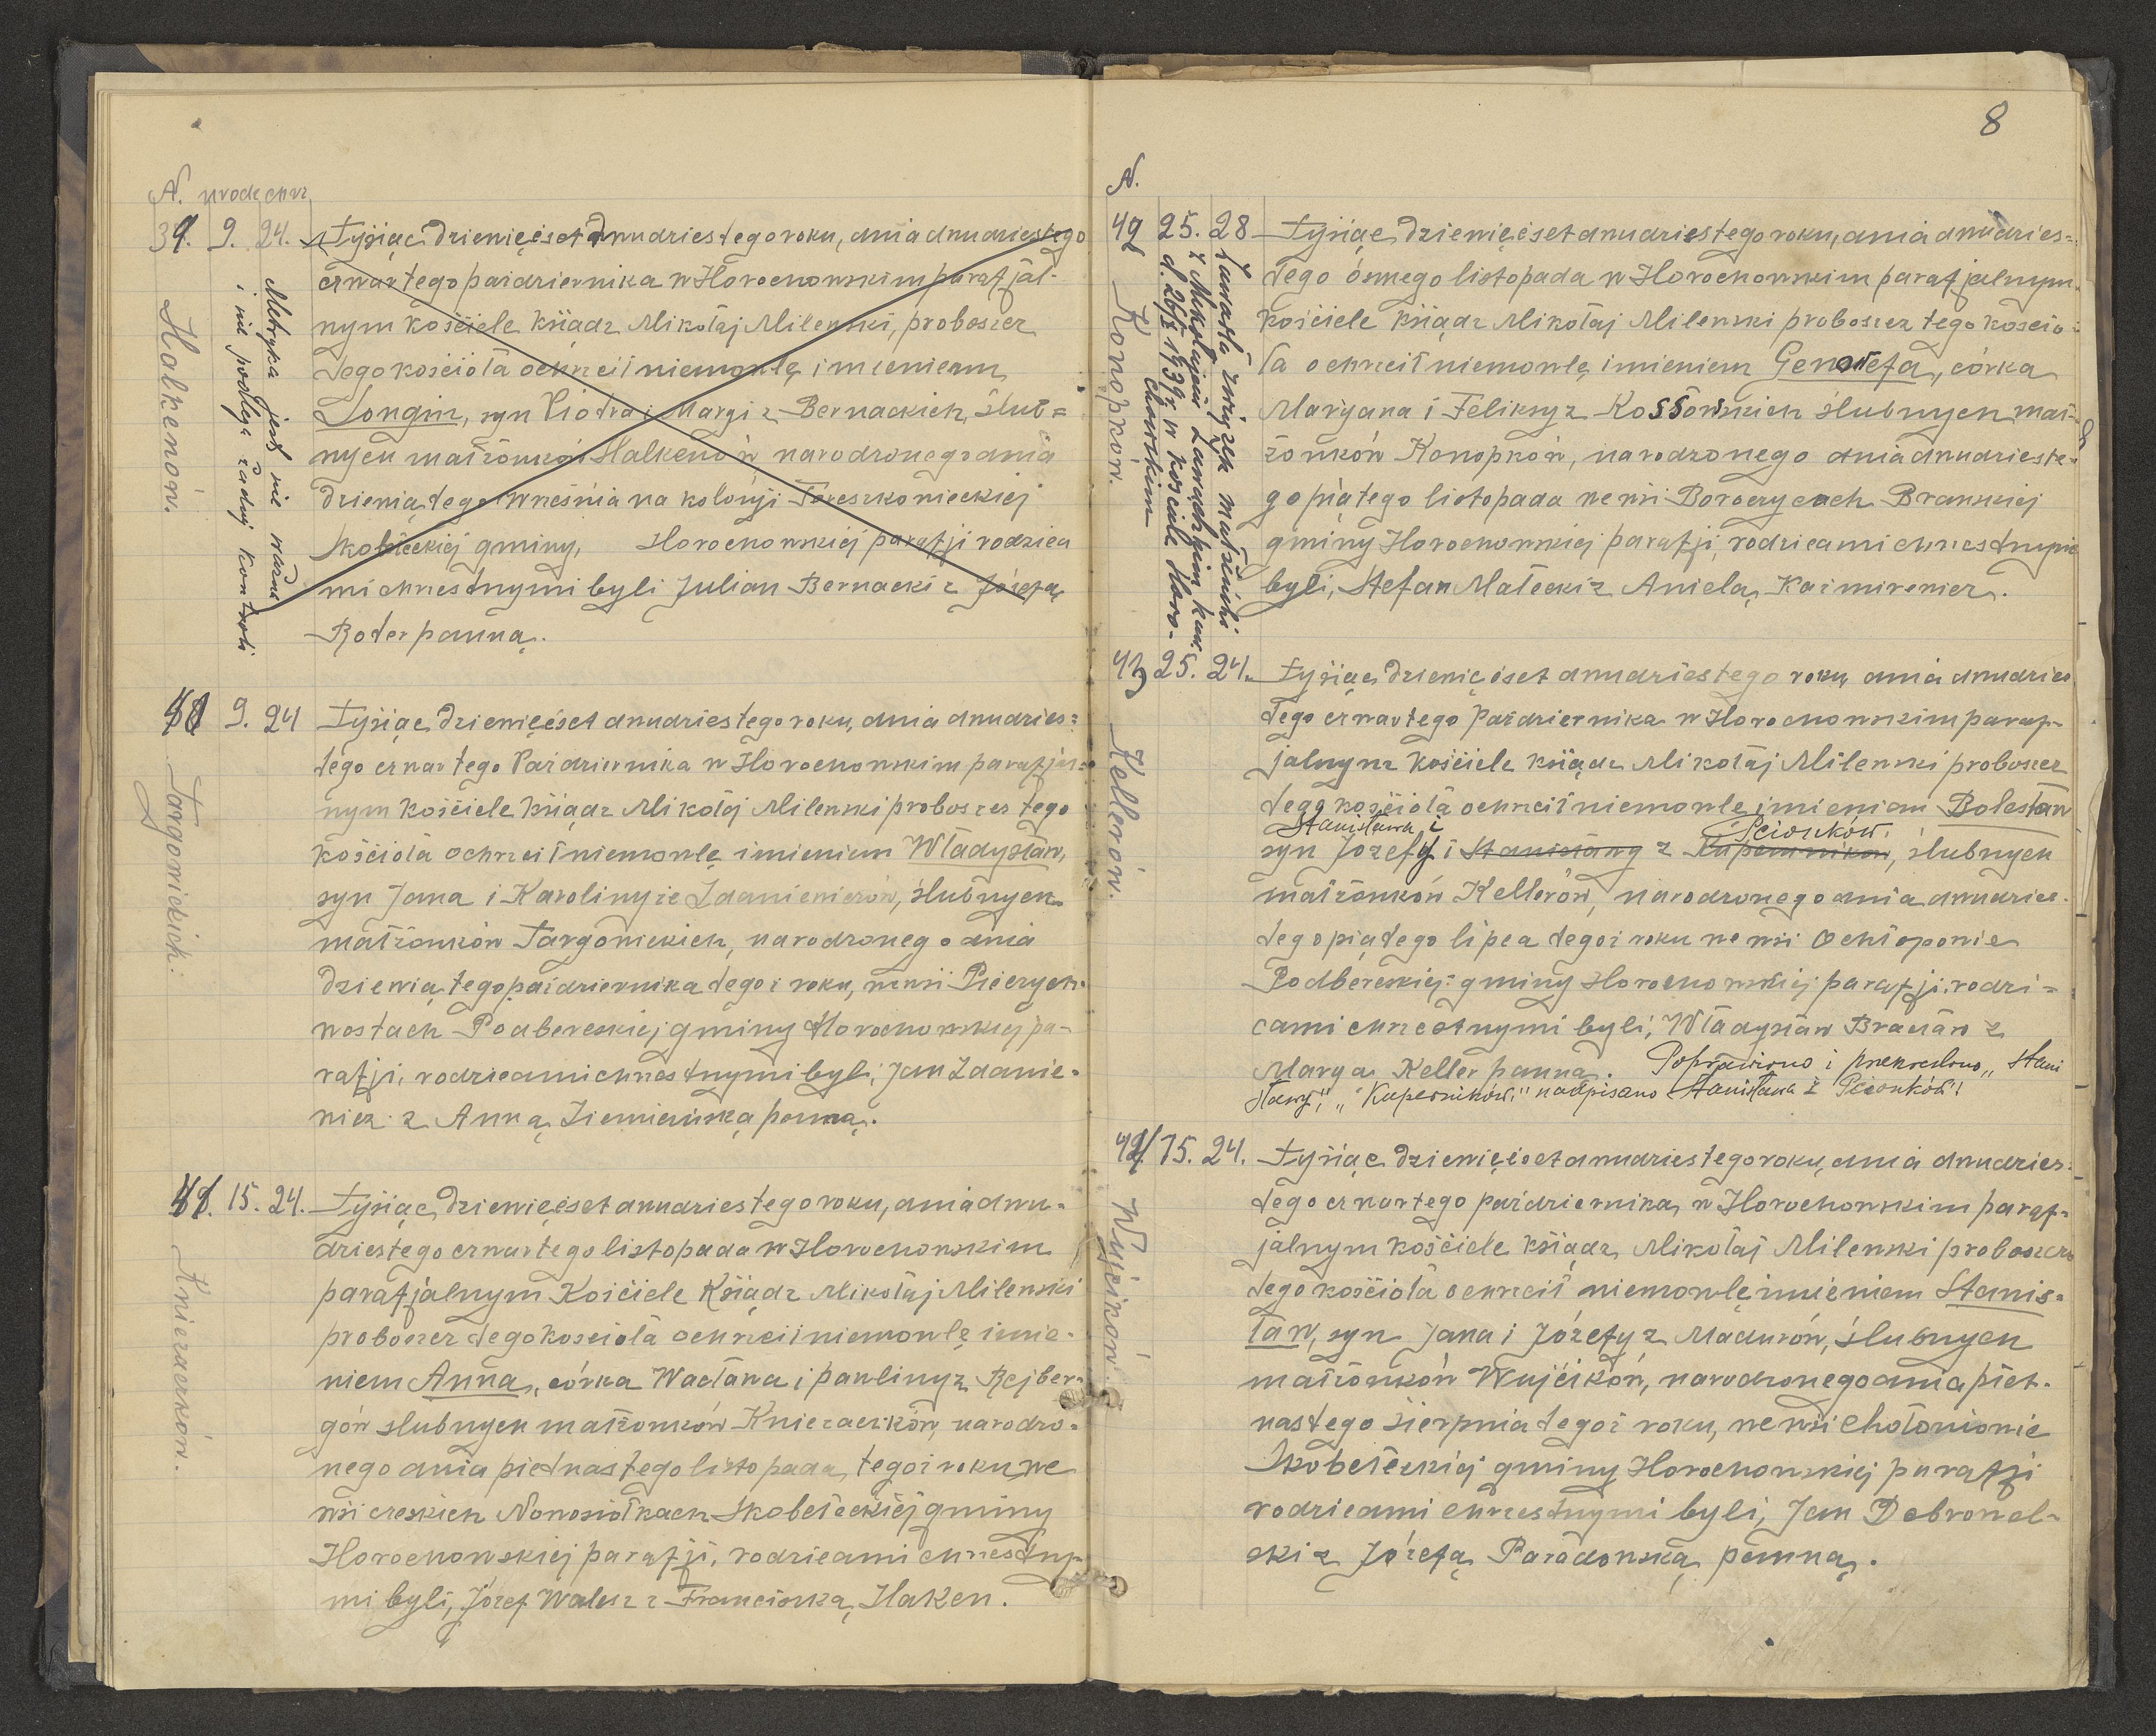 N. urodz chrz
39. 9. 24. Tysiąc dziewięćset dwudziestego roku, dnia dwudziestego
czwartego października w Horochowskim parafjal-
nym kościele ksiądz Mikołaj Milewski, proboszcz
tego kościoła ochrzcił niemowlę imieniem
Longin, syn Piotra i Maryi z Bernackich, ślub=
nych małżonków Halkenów narodzonego dnia
dziewiątego września na kolonji Tereszkowieckiej
Skobełeckiej gminy, Horochowskiej parafji rodzica
mi chrzestnymi byli Julian Bernacki z Józefą
Roter panną.
Halkenów.
Metryka jest nie ważna
i nie podlega żadnej kontroli
9. 24 Tysiąc dziewięćset dwudziestego roku, dnia dwudzies=
tego czwartego Października w Horochowskim parafjal=
nym kościele ksiądz Mikołaj Milewski proboszcz tego
kościoła ochrzcił niemowlę imieniem Władysław,
syn Jana i Karoliny ze Zdaniewiczów, ślubnych
małżonków Targonickich, narodzonego dnia
dziewiątego października tegoż roku, we wsi Pieczych-
wostach Podbereskiej gminy Horochowskiej pa-
rafji, rodzicami chrzestnymi byli; Jan Zdanie-
wicz z Anną Ziemieńską panną.
Targonickich.
15. 24. Tysiąc dziewięćset dwudziestego roku, dnia dwu-
dziestego czwartego listopada w Horochowskim
parafjalnym Kościele Ksiądz Mikołaj Milewski
proboszcz tego kościoła ochrzcił niemowlę imie-
niem Anna, córka Wacława i Pawliny z Rejber-
gów ślubnych małżonków Kniezaczków, narodzo=
nego dnia piętnastego listopada, tegoż roku we
wsi czeskich Nowosiołkach Skobełeckiej gminy
Horochowskiej parafji, rodzicami chrzestny-
mi byli, Józef Walesz z Franciszką Haken.
Kniezaczków.
8
N.
42 25. 28 Tysiąc dziewięćset dwudziestego roku, dnia dwudzies=
tego ósmego listopada w Horochowskim parafjalnym
kościele ksiądz Mikołaj Milewski proboszcz tego kościo-
ła ochrzcił niemowlę imieniem Genowefa, córka
Maryana i Feliksy z Kossowskich ślubnych mał-
żonków Konopków, narodzonego dnia dwudzieste-
go piątego listopada we wsi Boroczycach Brańskiej
gminy Horochowskiej parafji, rodzicami chrzestnymi
byli, Stefan Małecki z Anielą Kaźmirewicz.
Konopków.
Zawarła związek małżeński
z Mikołajem Zawadzkim kaw.
d. 26/ 1939 r w kościele Horo-
chowskim
43 25. 24. Tysiąc dziewięćset dwudziestego roku, dnia dwudzies
tego czwartego Października w Horochowskim paraf-
jalnym kościele ksiądz Mikołaj Milewski proboszcz
tego kościoła ochrzcił niemowlę imieniem Bolesław
Stanisława i Pcionków.
syn Józefy i Stanisławy z Kuperników, ślubnych
małżonków Kellerów, narodzonego dnia dwudzies-
tego piątego lipca tegoż roku we wsi Ochłopowie
Podbereskiej gminy Horochowskiej parafji, rodzi=
cami chrzestnymi byli; Władysław Bracław z
Maryą Keller panną. Poprawiono i przekreślono „Stani
sławy", „Kuperników" nadpisano Stanisława i Pcionków!
Kellerów.
15. 24. Tysiąc dziewięćset dwudziestego roku, dnia dwudzies-
tego czwartego października, w Horochowskim paraf-
jalnym kościele ksiądz Mikołaj Milewski proboszcz
tego kościoła ochrzcił niemowlę imieniem Stanis=
ław, syn Jana i Józefy z Madurów, ślubnych
małżonków Wujcików, narodzonego dnia pięt-
nastego sierpnia tegoż roku, we wsi Chołoniowie
Skobełeckiej gminy Horochowskiej parafji
rodzicami chrzestnymi byli, Jan Dobrowol-
ski z Józefą Paradowską panną.
Wujcików.